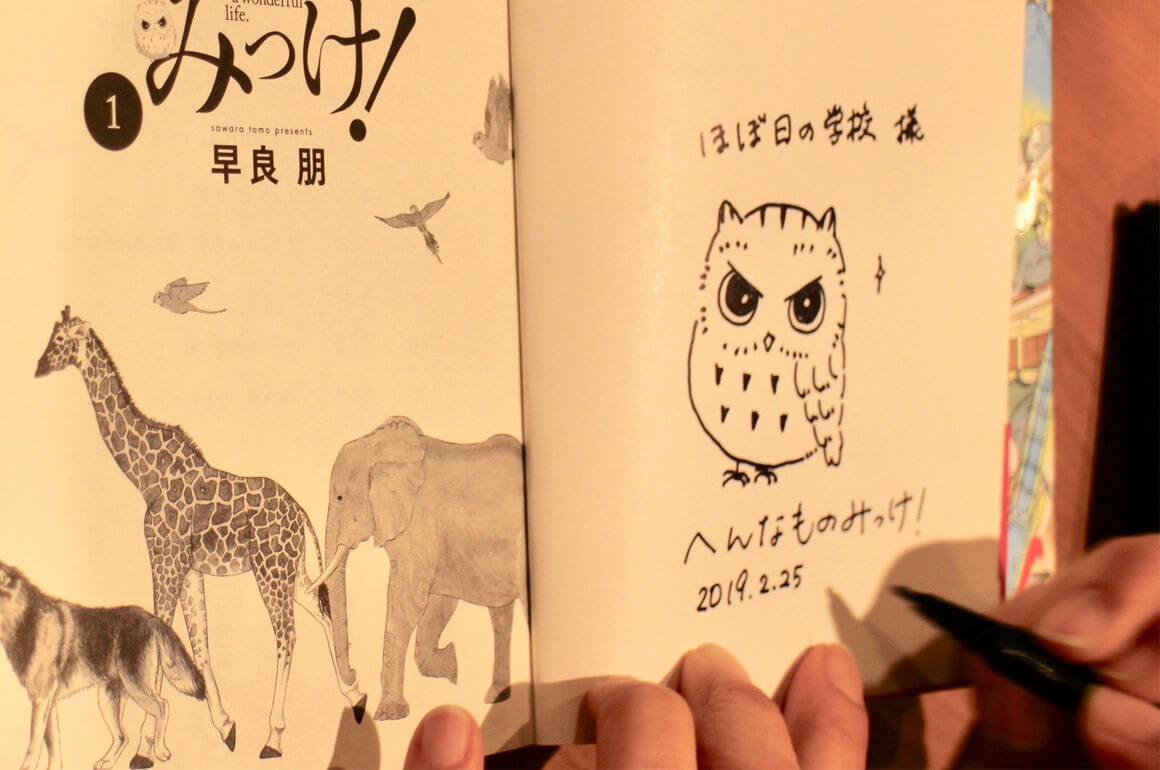 a wonderful
life.
みっけ!
1
sawara tomo presents
早良 朋
ほぼ日の学校 様
へんなものみっけ!
2019.2.25